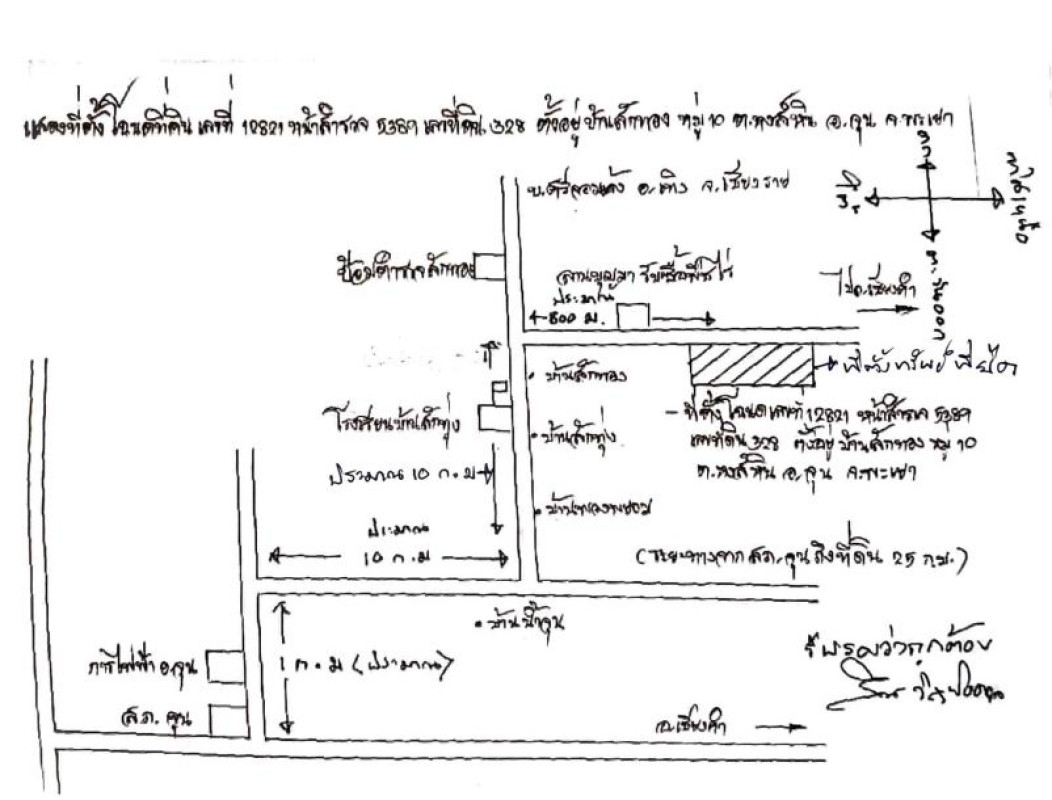 แสดงที่ตั้งโฉนดที่ดิน เลขที่ 12821 หน้าสำรวจ 5389 เลขที่ดิน 328 ตั้งอยู่ บ้านสักทอง หมู่ 10 ต.หงส์หิน อ.จุน จ.พะเยา
อ.เทิง จ.เชียงราย
ป้อมตำรวจสักทอง
ลานบุญมา รับซื้อพืชไร่
ประมาณ
800 ม.
ไปอ.เชียงคำ
ที่ตั้งทรัพย์
• บ้านสักทอง
โรงเรียนบ้านสักทุ่ง
• บ้านสักทุ่ง
- ที่ตั้งโฉนดเลขที่ 12821 หน้าสำรวจ 5389
เลขที่ดิน 328 ตั้งอยู่ บ้านสักทอง หมู่ 10
ต.หงส์หิน อ.จุน จ.พะเยา
ประมาณ 10 ก.ม
ประมาณ
10 ก.ม
(ระยะทางจาก สภ.จุน ถึงที่ดิน 25 กม.)
• บ้านน้ำจุน
1 ก.ม (ประมาณ)
การไฟฟ้า อ.จุน
สภ. จุน
อ.เชียงคำ
รับรองว่าถูกต้อง